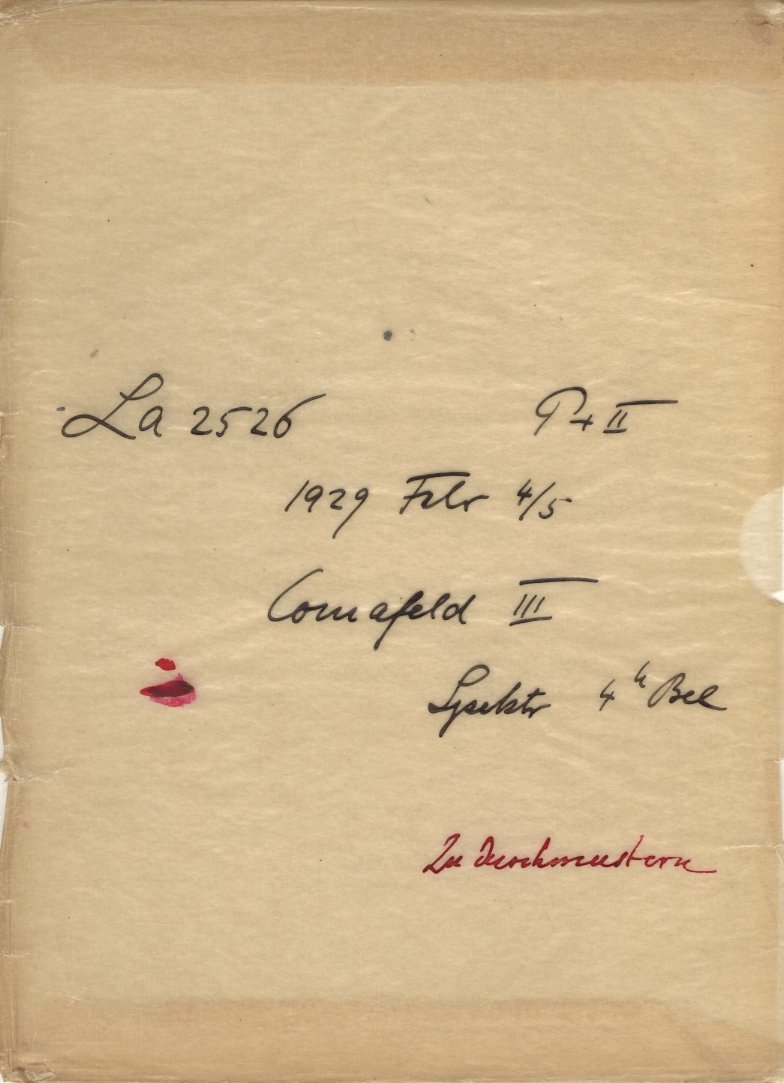 La 2526 P + II
1929 Febr 4/5
Comafeld III
Spektr 4h Bel
Zu durchmustern